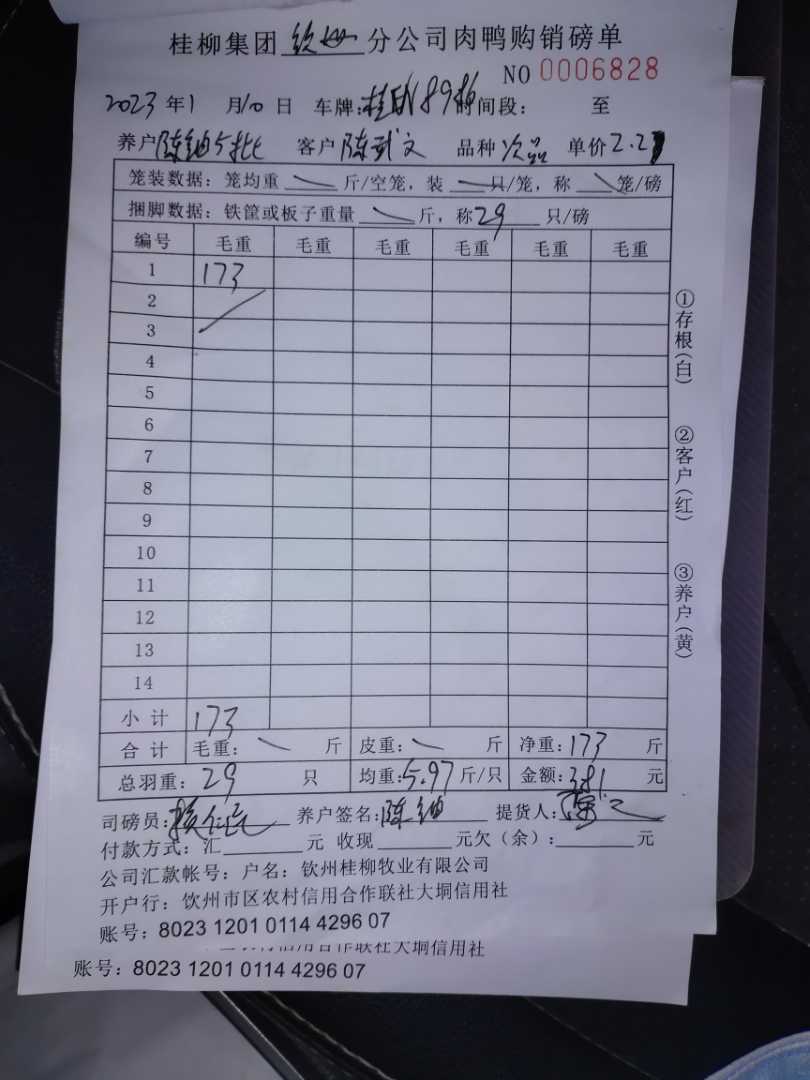 桂柳集团 钦州 分公司肉鸭购销磅单
NO 0006828
2023 年 1 月 10 日 车牌: 时间段: 至
养户 陈 5批 客户 陈武文 品种 次品 单价 2.2
笼装数据: 笼均重 斤/空笼, 装 只/笼, 称 笼/磅
捆脚数据: 铁筐或板子重量 斤, 称 29 只/磅
编号 毛重 毛重 毛重 毛重 毛重 毛重
1 173
2
3
4
5
6
7
8
9
10
11
12
13
14
小 计 173
合 计 毛重: 斤 皮重: 斤 净重: 173 斤
总羽重: 29 只 均重: 5.97 斤/只 金额: 381 元
司磅员: 养户签名: 陈 提货人:
付款方式: 汇 元 收现 元欠(余): 元
公司汇款帐号: 户名: 钦州桂柳牧业有限公司
开户行: 钦州市区农村信用合作联社大垌信用社
账号: 8023 1201 0114 4296 07
①存根(白)
②客户(红)
③养户(黄)
信用合作联社大垌信用社
账号: 8023 1201 0114 4296 07